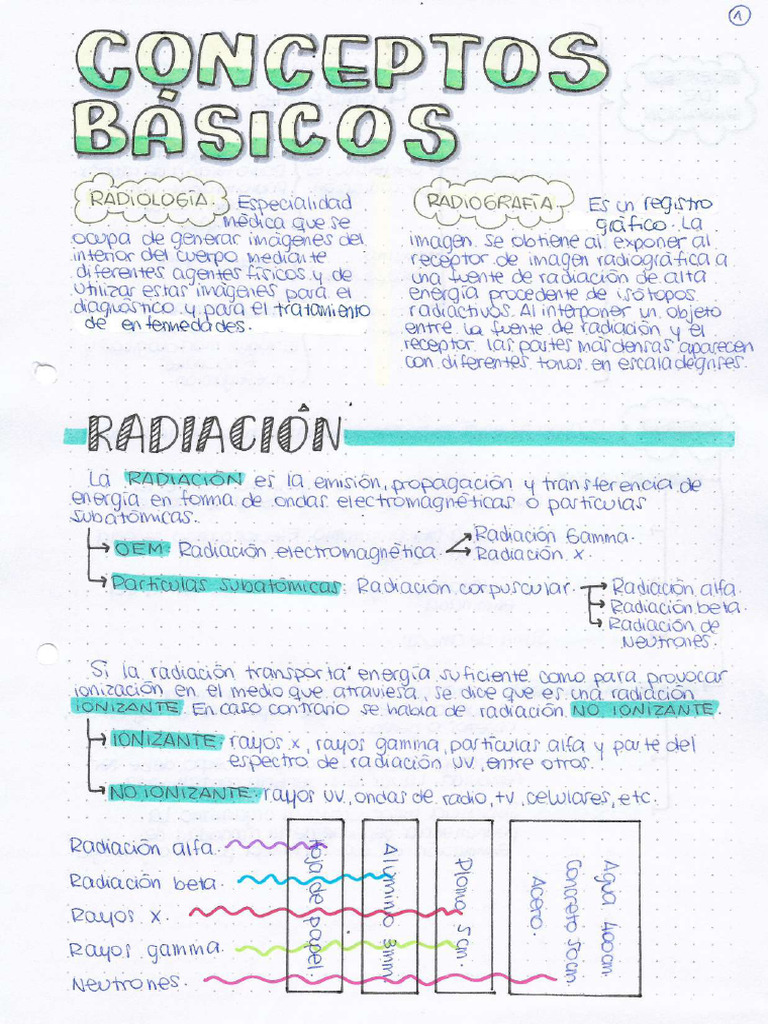 1
CONCEPTOS
BÁSICOS
RADIOLOGÍA. Especialidad
médica que se
ocupa de generar imágenes del
interior del cuerpo mediante
diferentes agentes físicos y de
utilizar estas imágenes para el
diagnóstico y para el tratamiento
de enfermedades.
RADIOGRAFÍA Es un registro
gráfico. La
imagen se obtiene al exponer al
receptor de imagen radiográfica a
una fuente de radiación de alta
energía procedente de isótopos
radiactivos. Al interponer un objeto
entre la fuente de radiación y el
receptor, las partes más densas aparecen
con diferentes tonos en escala de grises.
RADIACIÓN
La RADIACIÓN es la emisión, propagación y transferencia de
energía en forma de ondas electromagnéticas o partículas
subatómicas.
OEM: Radiación electromagnética. Radiación Gamma.
Radiación X.
Partículas subatómicas: Radiación corpuscular. Radiación alfa.
Radiación beta.
Radiación de
Neutrones.
Si la radiación transporta energía suficiente como para provocar
ionización en el medio que atraviesa, se dice que es una radiación
IONIZANTE. En caso contrario se habla de radiación NO IONIZANTE.
IONIZANTE: rayos x, rayos gamma, partículas alfa y parte del
espectro de radiación UV, entre otros.
NO IONIZANTE: rayos UV, ondas de radio, tv, celulares, etc.
Radiación alfa.
Radiación beta.
Rayos x.
Rayos gamma.
Neutrones.
Hoja de papel.
Aluminio 3mm.
Plomo 5cm.
Agua 400cm.
Concreto 50cm.
Acero.